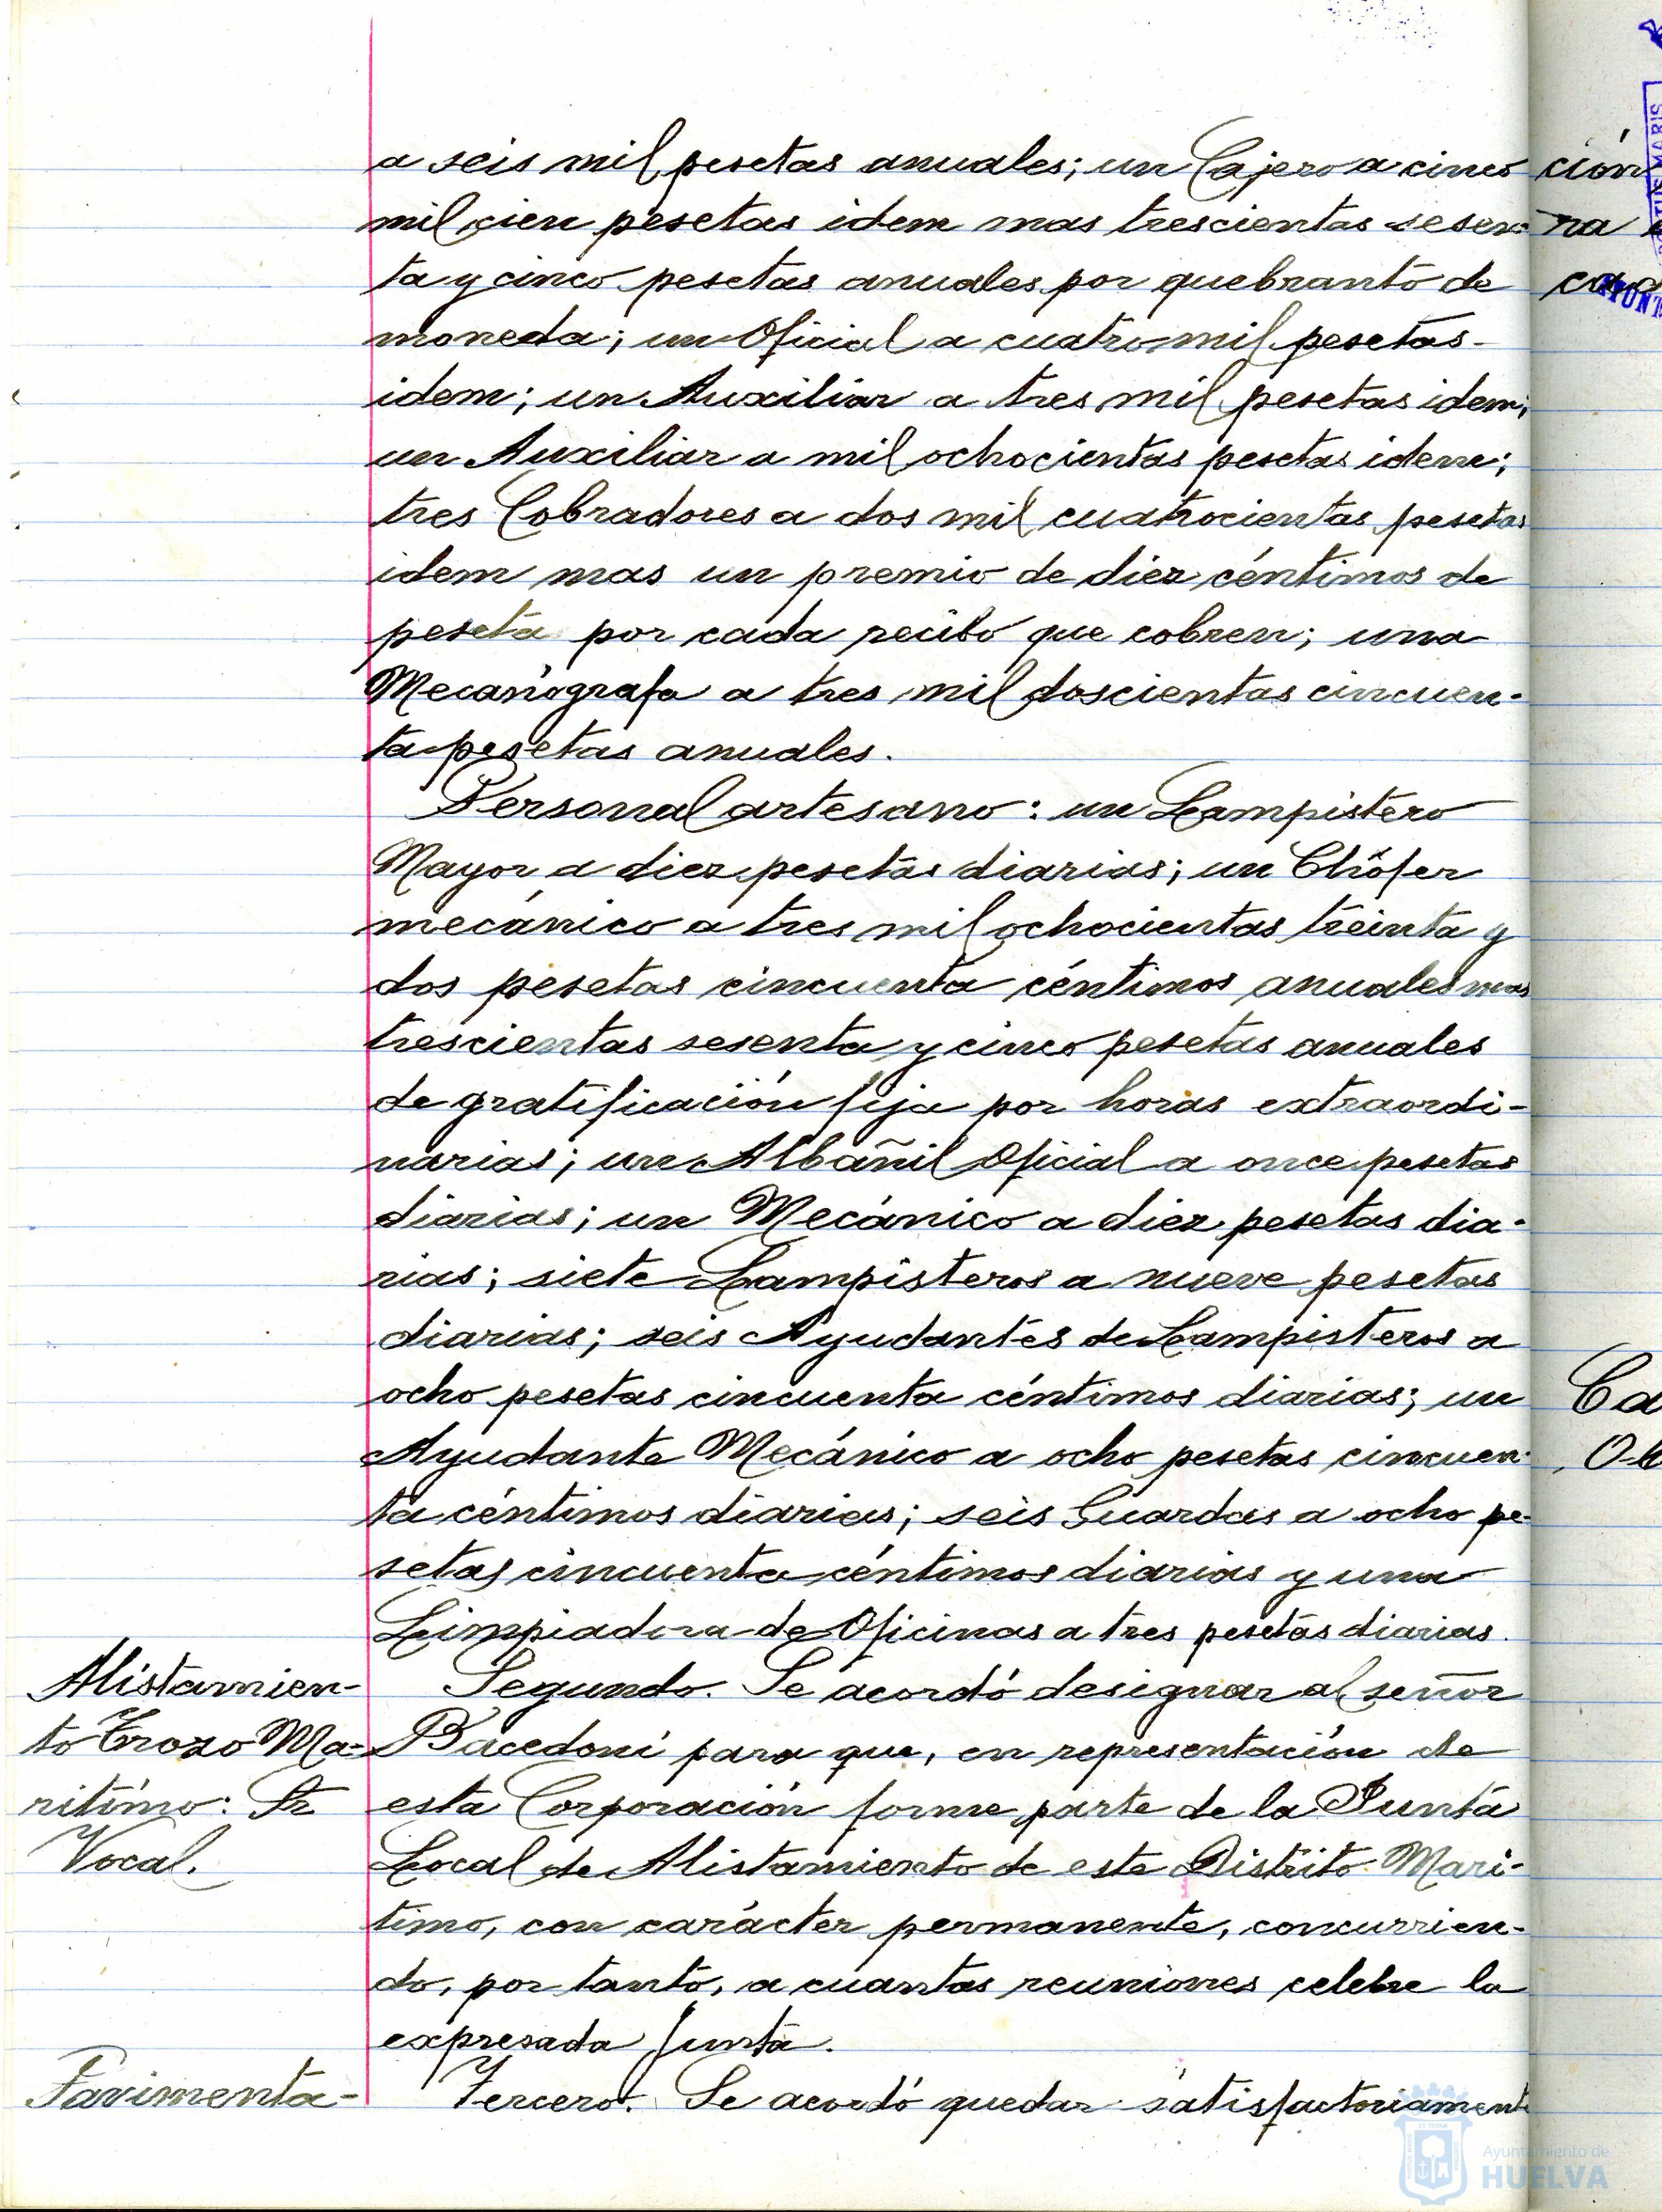 a seis mil pesetas anuales; un Cajero a cinco
mil cien pesetas idem mas trescientas sesen-
ta y cinco pesetas anuales por quebranto de
moneda; un Oficial a cuatro mil pesetas
idem; un Auxiliar a tres mil pesetas idem;
un Auxiliar a mil ochocientas pesetas idem;
tres Cobradores a dos mil cuatrocientas pesetas
idem mas un premio de diez céntimos de
peseta por cada recibo que cobren; una
Mecanógrafa a tres mil doscientas cincuen-
ta pesetas anuales.
Personal artesano: un Lampistero
Mayor a diez pesetas diarias; un Chófer
mecánico a tres mil ochocientas treinta y
dos pesetas cincuenta céntimos anuales mas
trescientas sesenta y cinco pesetas anuales
de gratificación fija por horas extraordi-
narias; un Albañil Oficial a once pesetas
diarias; un Mecánico a diez pesetas dia-
rias; siete Lampisteros a nueve pesetas
diarias; seis Ayudantes de Lampisteros a
ocho pesetas cincuenta céntimos diarias; un
Ayudante Mecánico a ocho pesetas cincuen-
ta céntimos diarias; seis Guardas a ocho pe-
setas cincuenta céntimos diarias y una
Limpiadora de Oficinas a tres pesetas diarias.
Alistamien-
to Trozo Ma-
rítimo: Sr.
Vocal.
Segundo. Se acordó designar al señor
Bacedoni para que, en representación de
esta Corporación forme parte de la Junta
Local de Alistamiento de este Distrito Marí-
timo, con carácter permanente, concurrien-
do, por tanto, a cuantas reuniones celebre la
expresada Junta.
Pavimenta-
Tercero. Se acordó quedar satisfactoriamente
ción
na
Ca
Ayuntamiento de
HUELVA